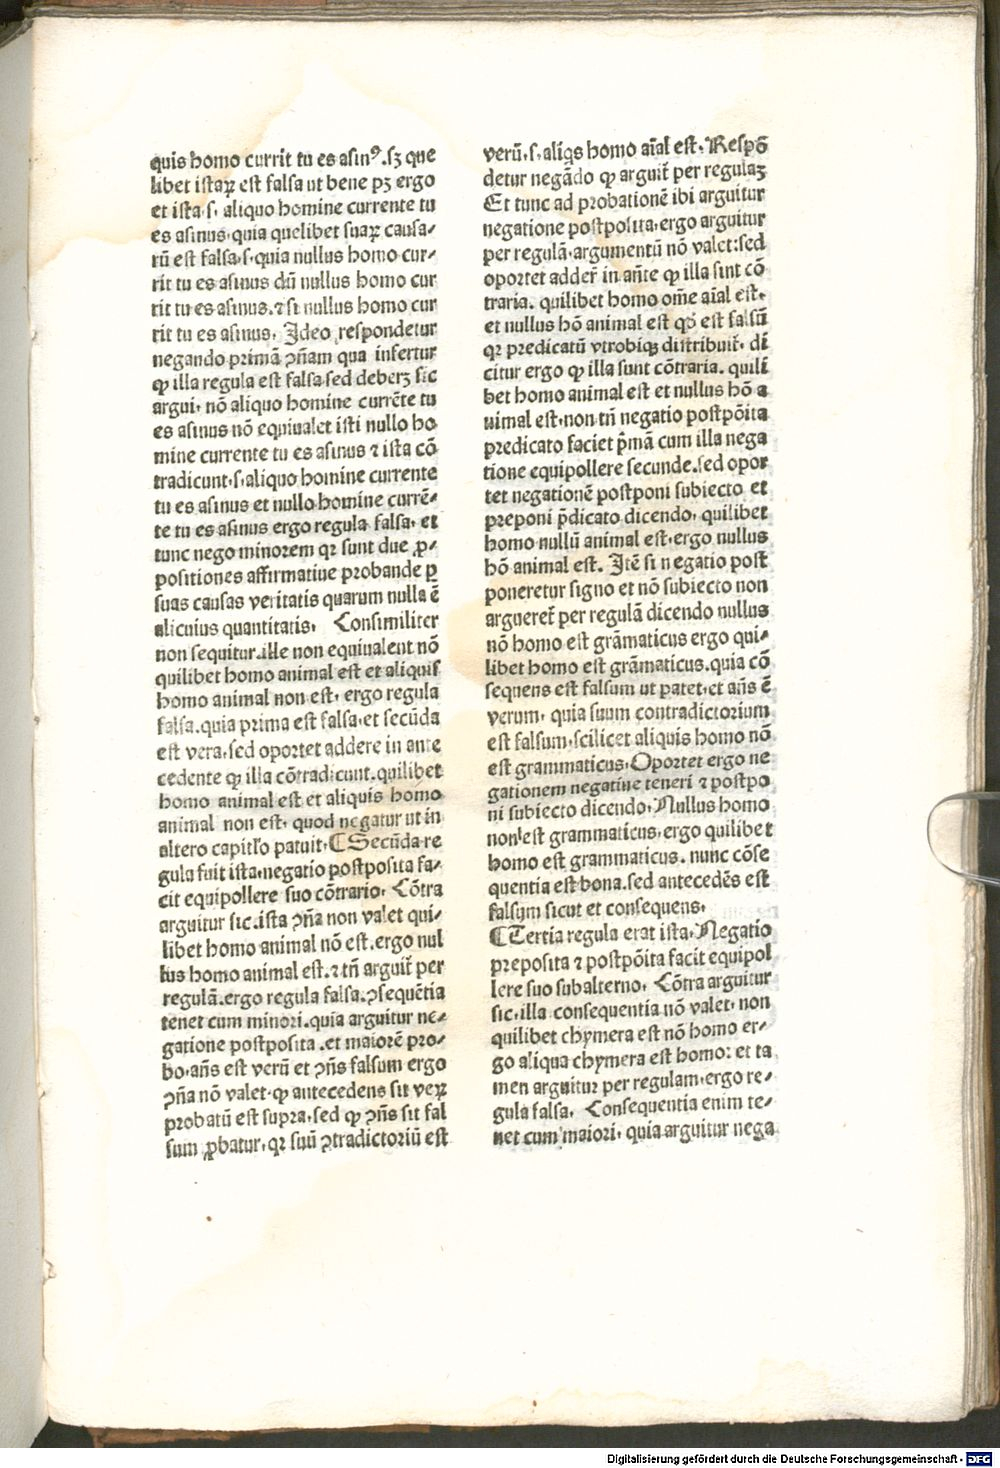 quis homo currit tu es asinꝰ.sꝫ que
libet istaꝝ est falsa ut bene pꝫ ergo
et ista.s. aliquo homine currente tu
es asinus.quia quelibet suaꝝ causa⸗
rū est falsa.s.quia nullus homo cur⸗
rit tu es asinus dū nullus homo cur
rit tu es asinus.⁊ si nullus homo cur
rit tu es asinus. Ideo respondetur
negando primā ꝯñam qua infertur
ꝙ illa regula est falsa sed deberꝫ sic
argui. nō aliquo homine currēte tu
es asinus nō equiualet isti nullo ho
mine currente tu es asinus ⁊ ista cō
tradicunt.s.aliquo homine currente
tu es asinus et nullo homine currē⸗
te tu es asinus ergo regula falsa. et
tunc nego minorem qꝛ sunt due ꝓ⸗
positiones affirmatiue probande ꝑ
suas causas veritatis quarum nulla ē
alicuius quantitatis. Consimiliter
non sequitur.ille non equiualent nō
quilibet homo animal est et aliquis
homo animal non est. ergo regula
falsa.quia prima est falsa.et secūda
est vera.sed oportet addere in ante
cedente ꝙ illa cōtradicunt.quilibet
homo animal est et aliquis homo
animal non est. quod negatur ut in
altero capitlo patuit. ⁋Secūda re
gula fuit ista.negatio postposita fa⸗
cit equipollere suo cōtrario. Cōtra
arguitur sic.ista ꝯña non valet qui⸗
libet homo animal nō est.ergo nul
lus homo animal est.⁊ tñ arguit̄ per
regulā.ergo regula falsa.ꝯsequētia
tenet cum minori.quia arguitur ne⸗
gatione postposita.et maiorē pro⸗
bo.añs est verū et ꝯñs falsum ergo
ꝯña nō valet.ꝙ antecedens sit veꝝ
probatū est supra.sed ꝙ ꝯñs sit fal
sum ꝓbatur.qꝛ suū ꝯtradictoriū est
verū.s.aliq̄s homo aīal est. Respō
detur negādo ꝙ arguit̄ per regulaꝫ
Et tunc ad probationē ibi arguitur
negatione postposita.ergo arguitur
per regulā.argumentū nō valet:sed
oportet adder̄ in añte ꝙ illa sint cō
traria. quilibet homo om̄e aīal est.
et nullus hō animal est qđ est falsū
qꝛ predicatū vtrobiqꝫ distribuit̄. di
citur ergo ꝙ illa sunt cōtraria. quili
bet homo animal est et nullus hō a
nimal est.non tñ negatio postpōita
predicato faciet p̄mā cum illa nega
tione equipollere secunde.sed opor
tet negationē postponi subiecto et
preponi p̄dicato dicendo. quilibet
homo nullū animal est.ergo nullus
hō animal est. Itē si negatio post
poneretur signo et nō subiecto non
argueret̄ per regulā dicendo nullus
nō homo est grāmaticus ergo qui⸗
libet homo est grāmaticus.quia cō
sequens est falsum ut patet.et añs ē
verum. quia suum contradictorium
est falsum.scilicet aliquis homo nō
est grammaticus. Oportet ergo ne
gationem negatiue teneri ⁊ postpo
ni subiecto dicendo. Nullus homo
non est grammaticus.ergo quilibet
homo est grammaticus. nunc cōse
quentia est bona.sed antecedēs est
falsum sicut et consequens.
⁋Tertia regula erat ista. Negatio
preposita ⁊ postpōita facit equipol
lere suo subalterno. Cōtra arguitur
sic.illa consequentia nō valet. non
quilibet chymera est nō homo er⸗
go aliqua chymera est homo: et ta
men arguitur per regulam.ergo re⸗
gula falsa. Consequentia enim te⸗
net cum maiori. quia arguitur nega
Digitalisierung gefördert durch die Deutsche Forschungsgemeinschaft - DFG